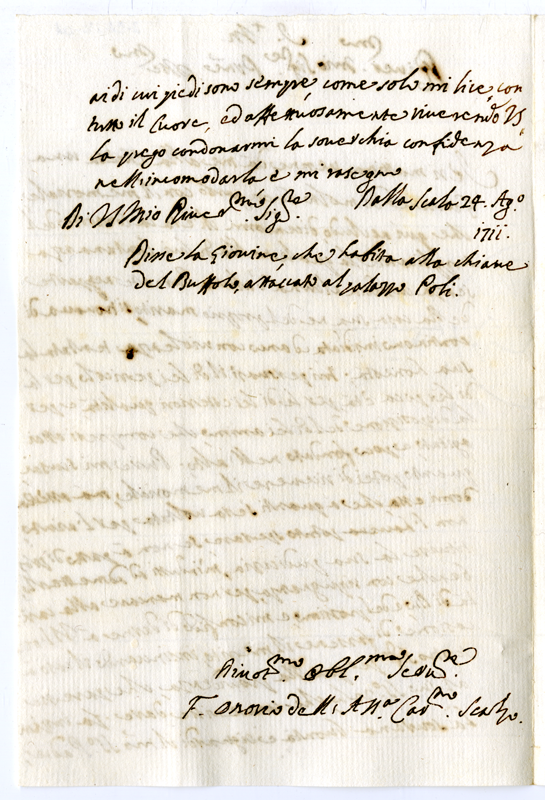 ai di cui piedi sono sempre, come solo mi lice, con
tutto il Cuore, ed affettuosamente riverendo VS
la prego condonarmi la soverchia confidenza
nell'incomodarla e mi rasegno
Di VS Mio River.mo Sig.re Dalla Scala 24. Ag.o
1711.
Disse la Giovine, che habita alla chiave
del Buffolo, attaccato al palazzo Poli.
Divot.mo Obl.mo Ser.re
F. Onorio dell'Ass.a Car.no Scalzo.